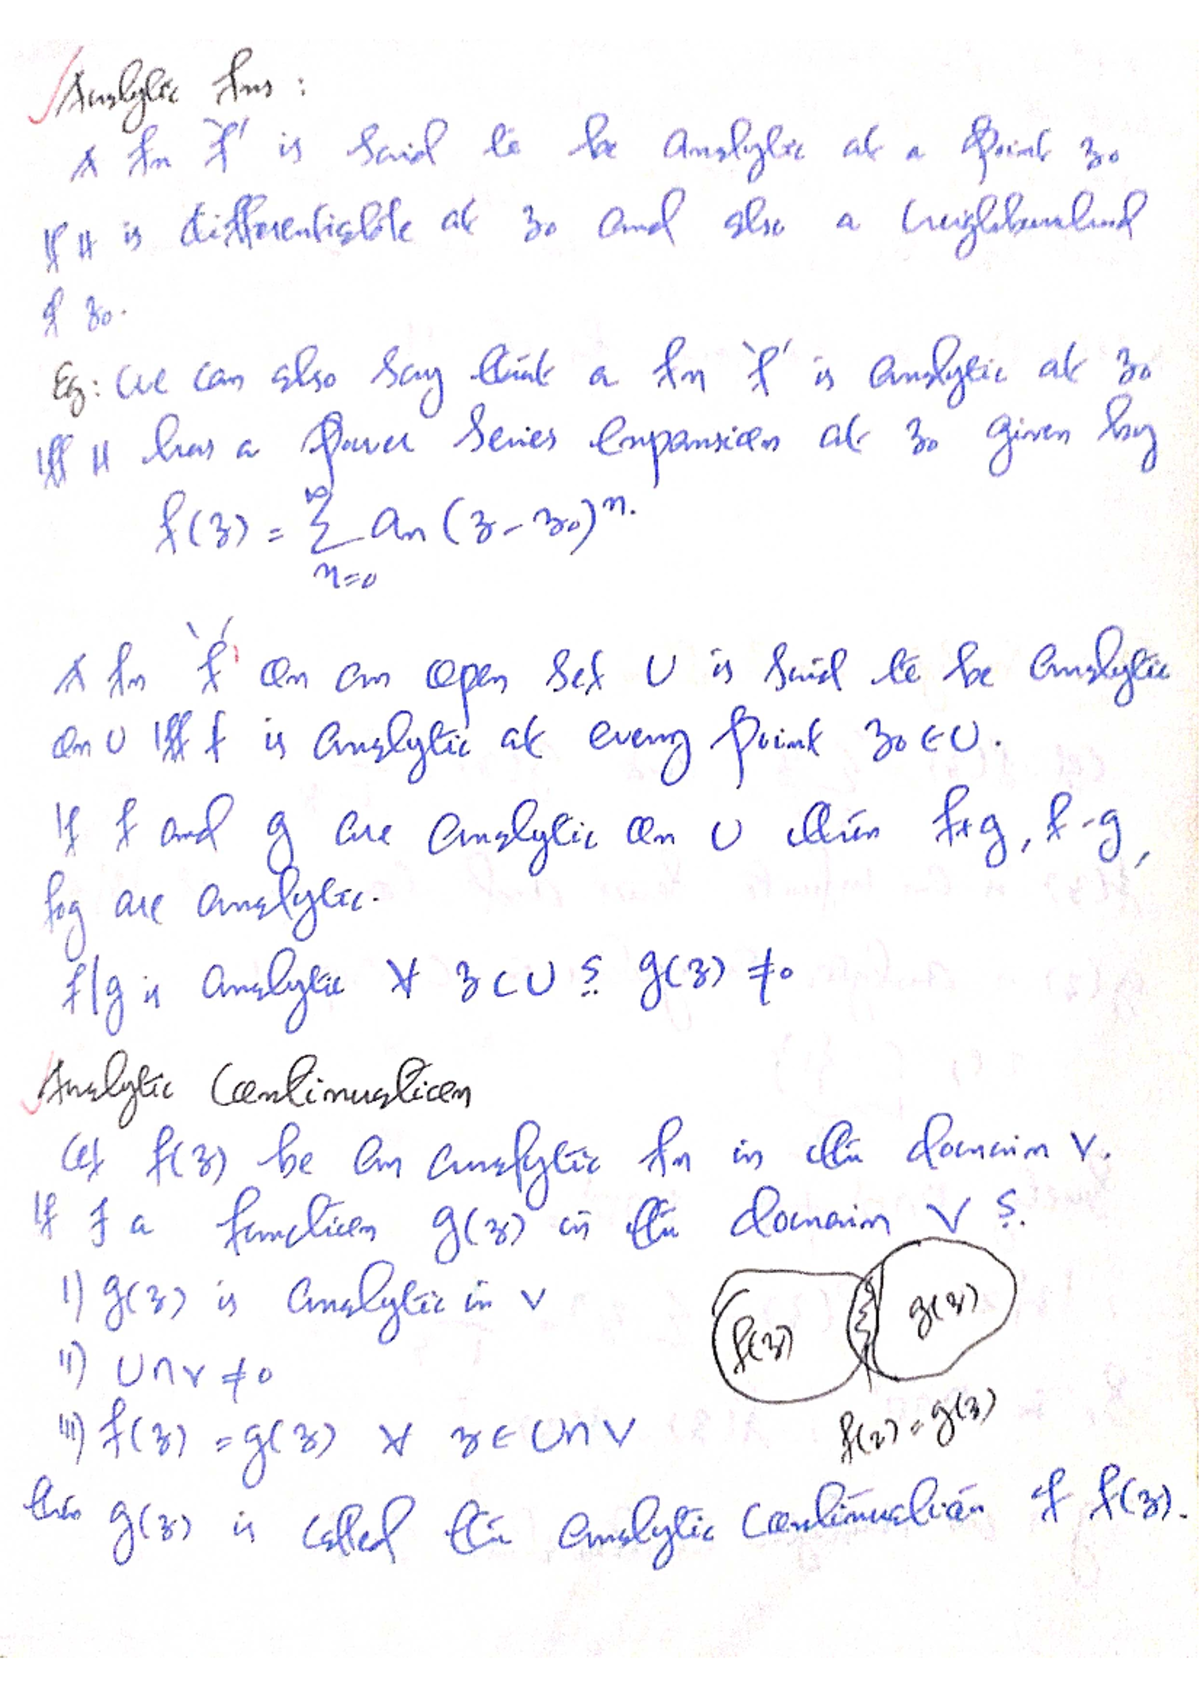 Analytic fns :
A fn 'f' is said to be analytic at a point z₀
if it is differentiable at z₀ and also a neighbourhood
of z₀.
Eg: we can also say that a fn 'f' is analytic at z₀
iff it has a power series expansion at z₀ given by
f(z) = ∞ Σ n=0 an (z - z₀)ⁿ.
A fn 'f' on an open set U is said to be analytic
on U iff f is analytic at every point z₀ ∈ U.
If f and g are analytic on U then f+g, f-g,
fog are analytic.
f/g is analytic ∀ z ⊂ U ∋ g(z) ≠ 0
Analytic Continuation
Let f(z) be an analytic fn in the domain V.
If ∃ a function g(z) in the domain V ∋
i) g(z) is analytic in V
ii) U∩V ≠ 0
iii) f(z) = g(z) ∀ z ∈ U∩V
f(z)
g(z)
f(z) = g(z)
then g(z) is called the analytic continuation of f(z).